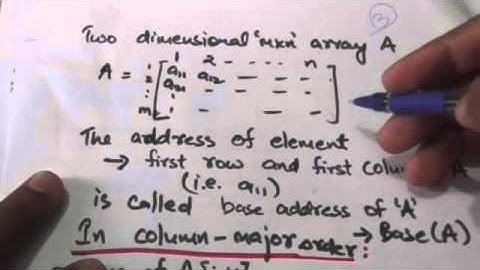 3
Two dimensional 'mxn' array A
1 2 - - - - - n
A = 1 a11 a12 - - - -
2 a21 - - - -
m
The address of element
→ first row and first A
(i.e. a11)
is called base address of 'A'
→ Base(A)
In column-major order:
of